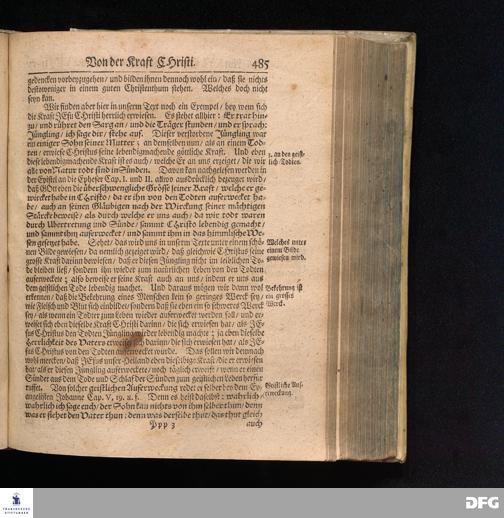 Von der Kraft CHristi. 485
gedencken vorbeyzugehen / und bilden ihnen dennoch wohl ein / daß sie nichts
destoweniger in einem guten Christenthum stehen. Welches doch nicht
seyn kan.
Wir finden aber hier in unserm Text noch ein Exempel / bey wem sich
die Kraft JEsu Christi herrlich erwiesen. Es stehet allhier: Er trat hin-
zu / und rühret den Sarg an / und die Träger stunden / und er sprach:
Jüngling / ich sage dir / stehe auf. Dieser verstorbene Jüngling war
ein einiger Sohn seiner Mutter; an demselben nun / als an einem Tod-
ten / erwiese Christus seine lebendigmachende göttliche Kraft. Und eben
diese lebendigmachende Kraft ist es auch / welche Er an uns erzeiget / die wir
alle von Natur todt sind in Sünden. Davon kan nachgelesen werden in
der Epistel an die Epheser Cap. I. und II. allwo ausdrücklich bezeuget wird /
daß GOtt eben die überschwengliche Grösse seiner Kraft / welche er ge-
wircket habe in Christo / da er ihn von den Todten auferwecket ha-
be / auch an seinen Gläubigen nach der Wirckung seiner mächtigen
Stärcke beweise / als durch welche er uns auch / da wir todt waren
durch Ubertretung und Sünde / sammt Christo lebendig gemacht /
und sammt ihm auferwecket / und sammt ihm in das himmlische We-
sen gesetzet habe. Sehet / das wird uns in unserm Texte unter einem schö-
nen Bilde gewiesen / da nemlich gezeiget wird / daß gleichwie Christus seine
grosse Kraft darinn bewiesen / daß er diesen Jüngling nicht im leiblichen To-
de bleiben ließ / sondern ihn wieder zum natürlichen Leben von den Todten
auferweckete; also beweise er seine Kraft auch an uns / indem er uns aus
dem geistlichen Tode lebendig machet. Und daraus mögen wir dann wol
erkennen / daß die Bekehrung eines Menschen kein so geringes Werck sey /
wie Fleisch und Blut sich einbildet / sondern daß sie eben ein so schweres Werck
sey / als wenn ein Todter zum Leben wieder auferwecket werden soll / und er-
weiset sich eben dieselbe Kraft CHristi darinn / die sich erwiesen hat / als JE-
sus Christus den Todten Jüngling wieder lebendig machte; ja eben dieselbe
Herrlichkeit des Vaters erweiset sich darinn / die sich erwiesen hat / als JE-
sus Christus von den Todten auferwecket wurde. Das sollen wir demnach
wohl mercken / daß JEsus unser Heiland eben dieselbige Kraft / die er erwiesen
hat / als er diesen Jüngling auferweckete / noch täglich erweist / wenn er einen
Sünder aus dem Tode und Schlaf der Sünden zum geistlichen Leben herfür
ruffet. Von solcher geistlichen Auferweckung redet er selber bey dem Ev-
angelisten Johanne Cap. V, 19. u. f. Denn es heist daselbst: wahrlich /
wahrlich ich sage euch / der Sohn kan nichts von ihm selber thun / denn
was er siehet den Vater thun: denn was derselbe thut / das thut gleich
Ppp 3 auch
3. an den geist-
lich-Todten.
Welches unter
einem Bilde
gewiesen wird.
Bekehrung ist
ein grosses
Werck.
Geistliche Auf-
erweckung.
FRANCKESCHE
STIFTUNGEN
DFG